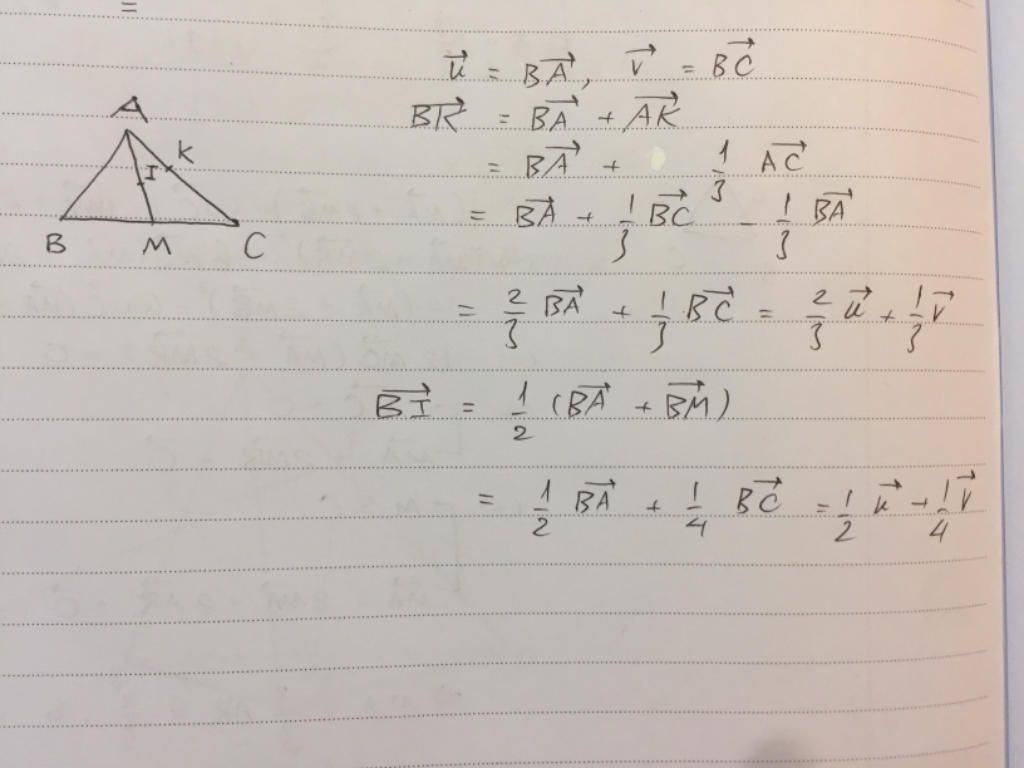 =
u⃗ = BA⃗, v⃗ = BC⃗
BK⃗ = BA⃗ + AK⃗
= BA⃗ + 1/3 AC⃗
= BA⃗ + 1/3 BC⃗ - 1/3 BA⃗
= 2/3 BA⃗ + 1/3 BC⃗ = 2/3 u⃗ + 1/3 v⃗
BI⃗ = 1/2 (BA⃗ + BM⃗)
= 1/2 BA⃗ + 1/4 BC⃗ = 1/2 u⃗ + 1/4 v⃗
A
K
I
B M C